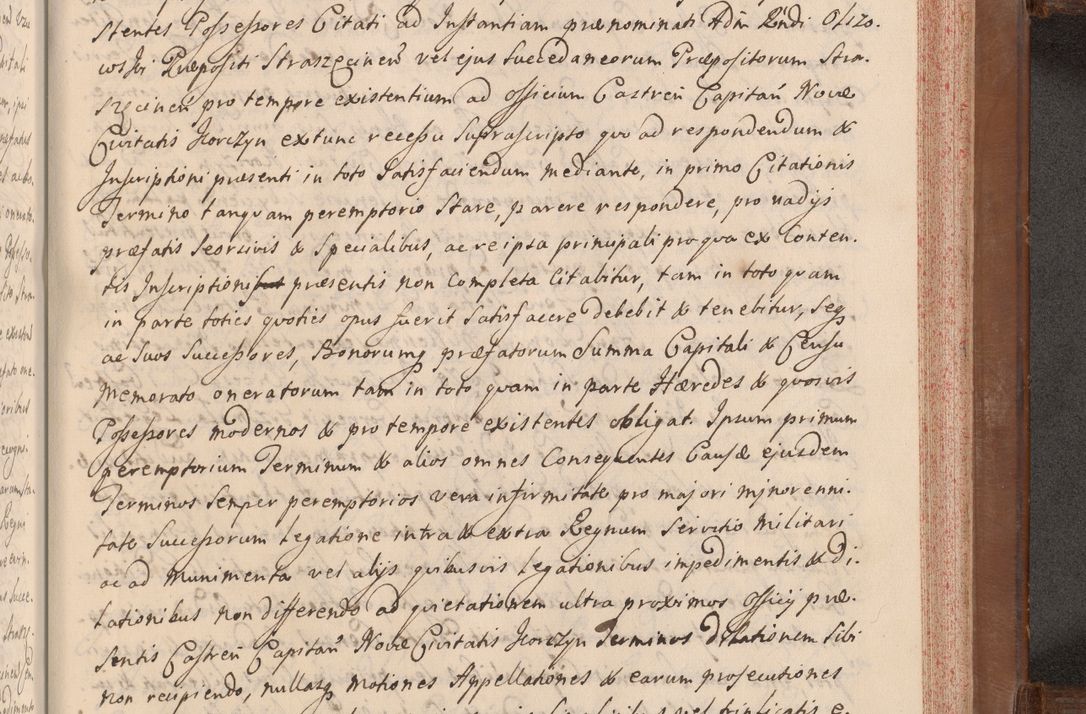 stentes Possessores Citati ad Instantiam prænominati Adm Rndi Olszo.
wski Præpositi Straszęcinen̄ vel ejus Succedaneorum Præpositorum Stra.
szęcinen̄ pro tempore existentium ad Officium Castren̄ Capitan̄ Novæ
Civitatis Korczyn extunc recessu Suprascripto quo ad respondendum &
Inscriptioni præsenti in toto Satisfaciendum mediante, in primo Citationis
Termino tanquam peremptorio Stare, parere respondere, pro vadijs
præfatis Seorsivis & Specialibus, ac re ipsa principali pro qua ex Conten.
tis Inscriptionis præsentis non Completa Citabitur, tam in toto quam
in parte toties quoties opus fuerit Satisfacere debebit & tenebitur, Seq
ac Suos Successores, Bonorumq præfatorum Summa Capitali & Censu
Memorato oneratorum tam in toto quam in parte Hæredes & quosvis
Possessores modernos & pro tempore existentes obligat. Ipsum primum
peremptorium Terminum & alios omnes Consequentes Causæ ejusdem
Terminos Semper peremptorios vera infirmitate pro majori minorenni.
tate Successorum legatione intra & extra Regnum Servitio Militari
ac ad Munimenta vel alijs quibusvis legationibus impedimentis & Di.
lationibus non differendo ad quietationem ultra proximos Officij præ.
sentis Castren̄ Capitan̄ Novæ Civitatis Korczyn Terminos Dilationem Sibi
non recipiendo, nullasq motiones Appellationes & earum prosecutiones
vel triplicatis e.